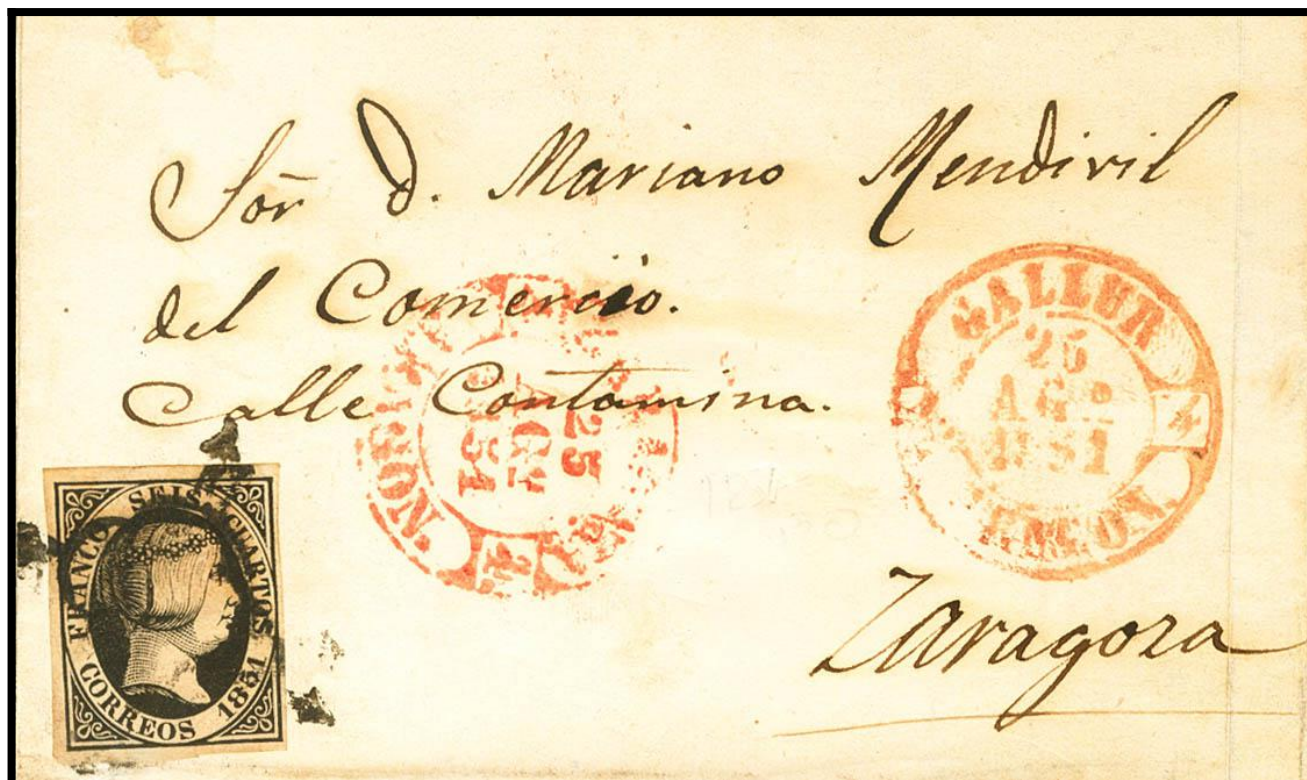 Sor̃ D. Mariano Mendivil
del Comercio.
Calle Contamina.
GALLUR
25
AGº
1851
ARAGON.
4
25
AGº
1851
ARAGON.
Zaragoza
FRANCO SEIS CUARTOS
CORREOS 1851